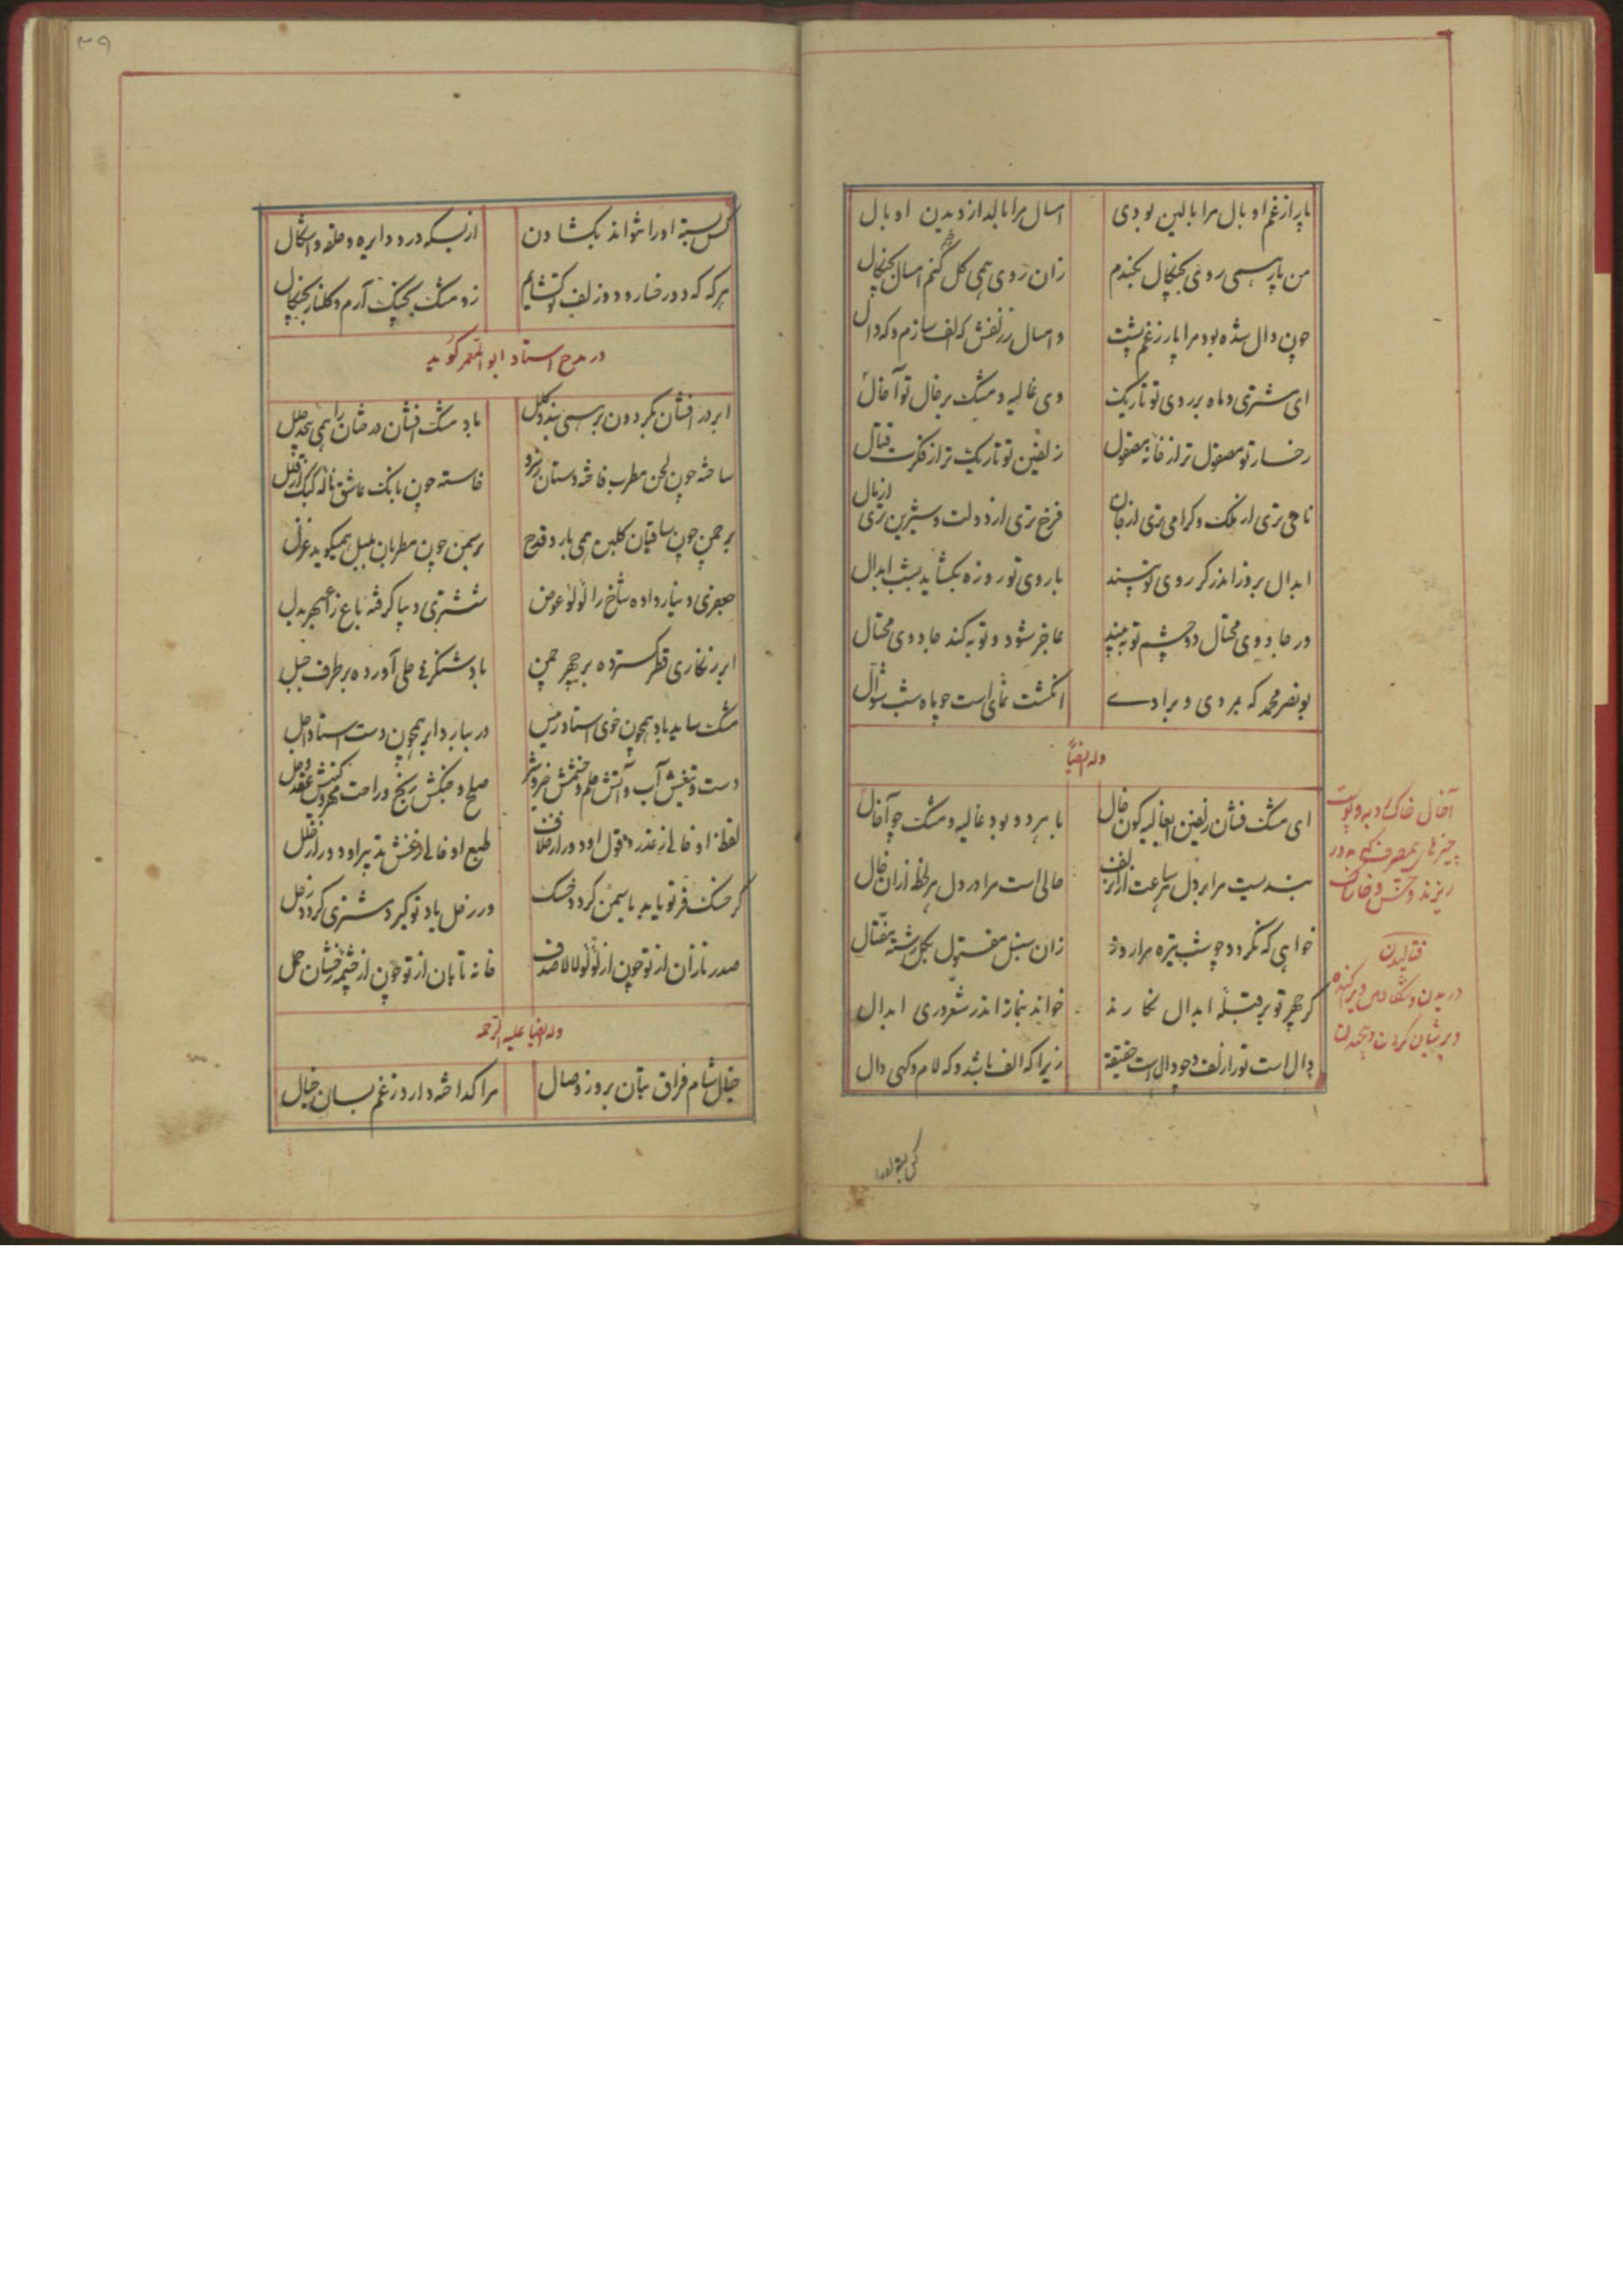 پار از غم او بال مرا بالین بودی
امسال مرا بالد از دیدن او بال
من پار همی روی بچنگال بکندم
زان روی همی گل کنم امسال بچنگال
چون دال شده بود مرا پار ز غم پشت
و امسال ز زلفش که الف سازم و که دال
ای مشتری و ماه بر روی تو تاریک
وی غالیه و مشک بر خال تو آخال
رخسار تو مصقول تر از خانهٔ مصقول
زلفین تو تاریک تر از فکرت قتال
نامی تری از ملک و کرامی تری از جان
فرخ تری از دولت و شیرین تری از مال
ابدال بروز اندر کر روی تو بینند
با روی تو روزه بکشاید بشب ابدال
ور جادوی محتال دو چشم تو به بیند
عاجز شود و توبه کند جادوی محتال
بونصر محمد که بمردی و برادی
انکشت نمای است چو ماه شب شوال
وله ایضاً
ای مشک فشان زلفین ای غالیه کون خال
با هر دو بود غالیه و مشک چو آخال
بندیست مرا بر دل هر ساعت از آن زلف
حالی است مرا در دل هر لحظه از آن خال
خواهی که نکردد چو شب تیره مرا روز
زان سنبل مفتول بکل رشته مفتال
کر چهر تو بر قبلهٔ ابدال نکارند
خوانند نماز اندر شعر دری ابدال
دال است تو را زلف و چو دال است حقیقة
زیرا که الف باشد و که لام و کهی دال
آخال خاک
ریزند و خس و خاشاک
فتالیدن
دریدن و شکافتن و پراکنده
و پریشان کردن و
کس بسته او را
۳۹
کس بسته او را نتواند بکشادن
از بسکه درو دایره و حلقه و اشکال
هر که که دو رخسار و دو زلف تو کشایم
زو مشک بچنک آرم و کلنار بچنکال
در مدح استاد ابوالمعمر کوید
ابر در افشان بکردون بر همی بندد کلل
باد مشک افشان درختان را همی بخشد حلل
ساخته چون لحن مطرب فاخته دستان نزد
خاسته چون بانک عاشق نالهٔ کبک از قلل
بر چمن چون ساقیان کلبن همی بارد قدح
بر سمن چون مطربان بلبل همیکوید غزل
جعفری دینار داده شاخ را لؤلؤ عوض
ششتری دیبا کرفته باغ ز بدل
ابر زنکاری قطر کسترده بر چهر چمن
باد شنکرفی حلی آورده بر طرف جبل
مشک ساید باد همچون خوی استاد رئیس
در ببارد ابر همچون دست استاد اجل
دست و تیغش آب و آتش حلم و خشمش خیر و شر
صلح و جنکش رنج و راحت مهر و کینش
لفظ او خالی ز عذر و قول او دور از خلاف
طبع او خالی ز غش تدبیر او دور از خلل
کر خسک فر تو یابد یاسمین کردد خسک
ور زحل یاد تو کیرد مشتری کردد زحل
صدر نازان از تو چون از لؤلؤ لالا صدف
خانه تابان از تو چون از چشمه رخشان حمل
وله ایضا علیه الرحمه
خیال شام فراق بتان بروز وصال
مرا کداخته دارد ز غم بسان خیال